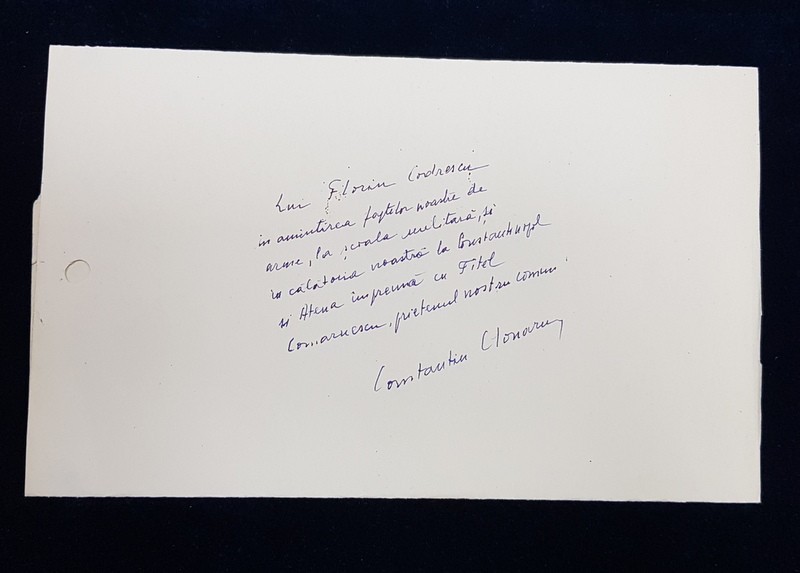 Lui Florin Codrescu
in amintirea faptelor noastre de
arme, la școala militară, și
in călătoria noastră la Constantinopol
si Atena împreună cu Fitel
Comarnescu, prietenul nostru comun.
Constantin Clonaru